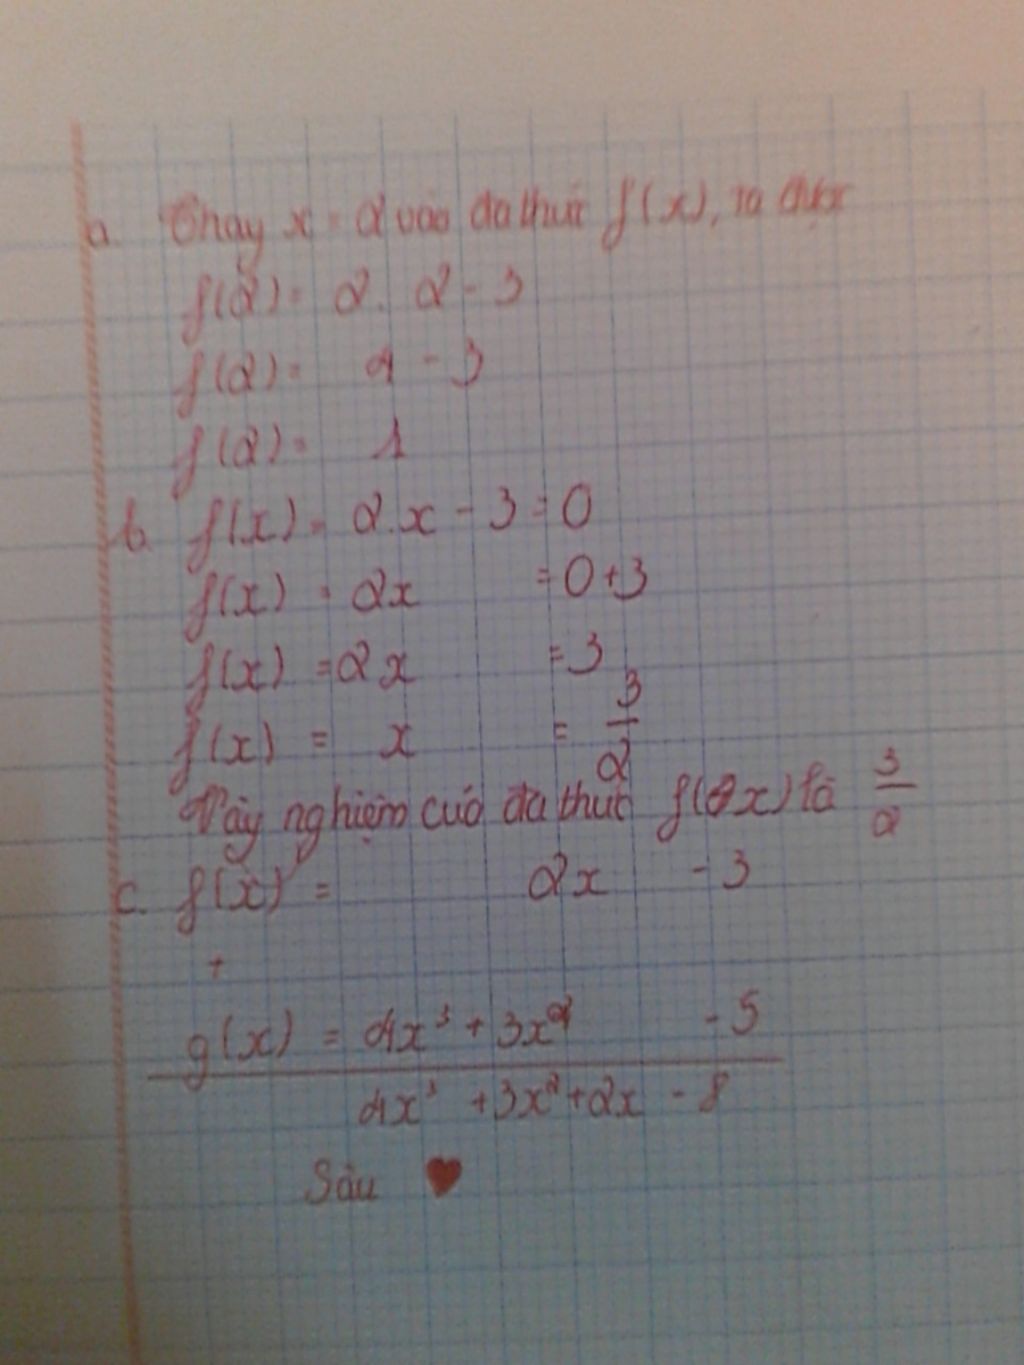 a. Thay x = 2 vào đa thức f(x), ta được
f(2) = 2. 2 - 3
f(2) = 4 - 3
f(2) = 1
b. f(x) = 2.x - 3 = 0
f(x) = 2x = 0+3
f(x) = 2x = 3
f(x) = x = 3/2
Vậy nghiệm của đa thức f(2x) là 3/2
c. f(x) = 2x - 3
+
g(x) = 4x³ + 3x² - 5
4x³ + 3x² + 2x - 8
Sâu ♥